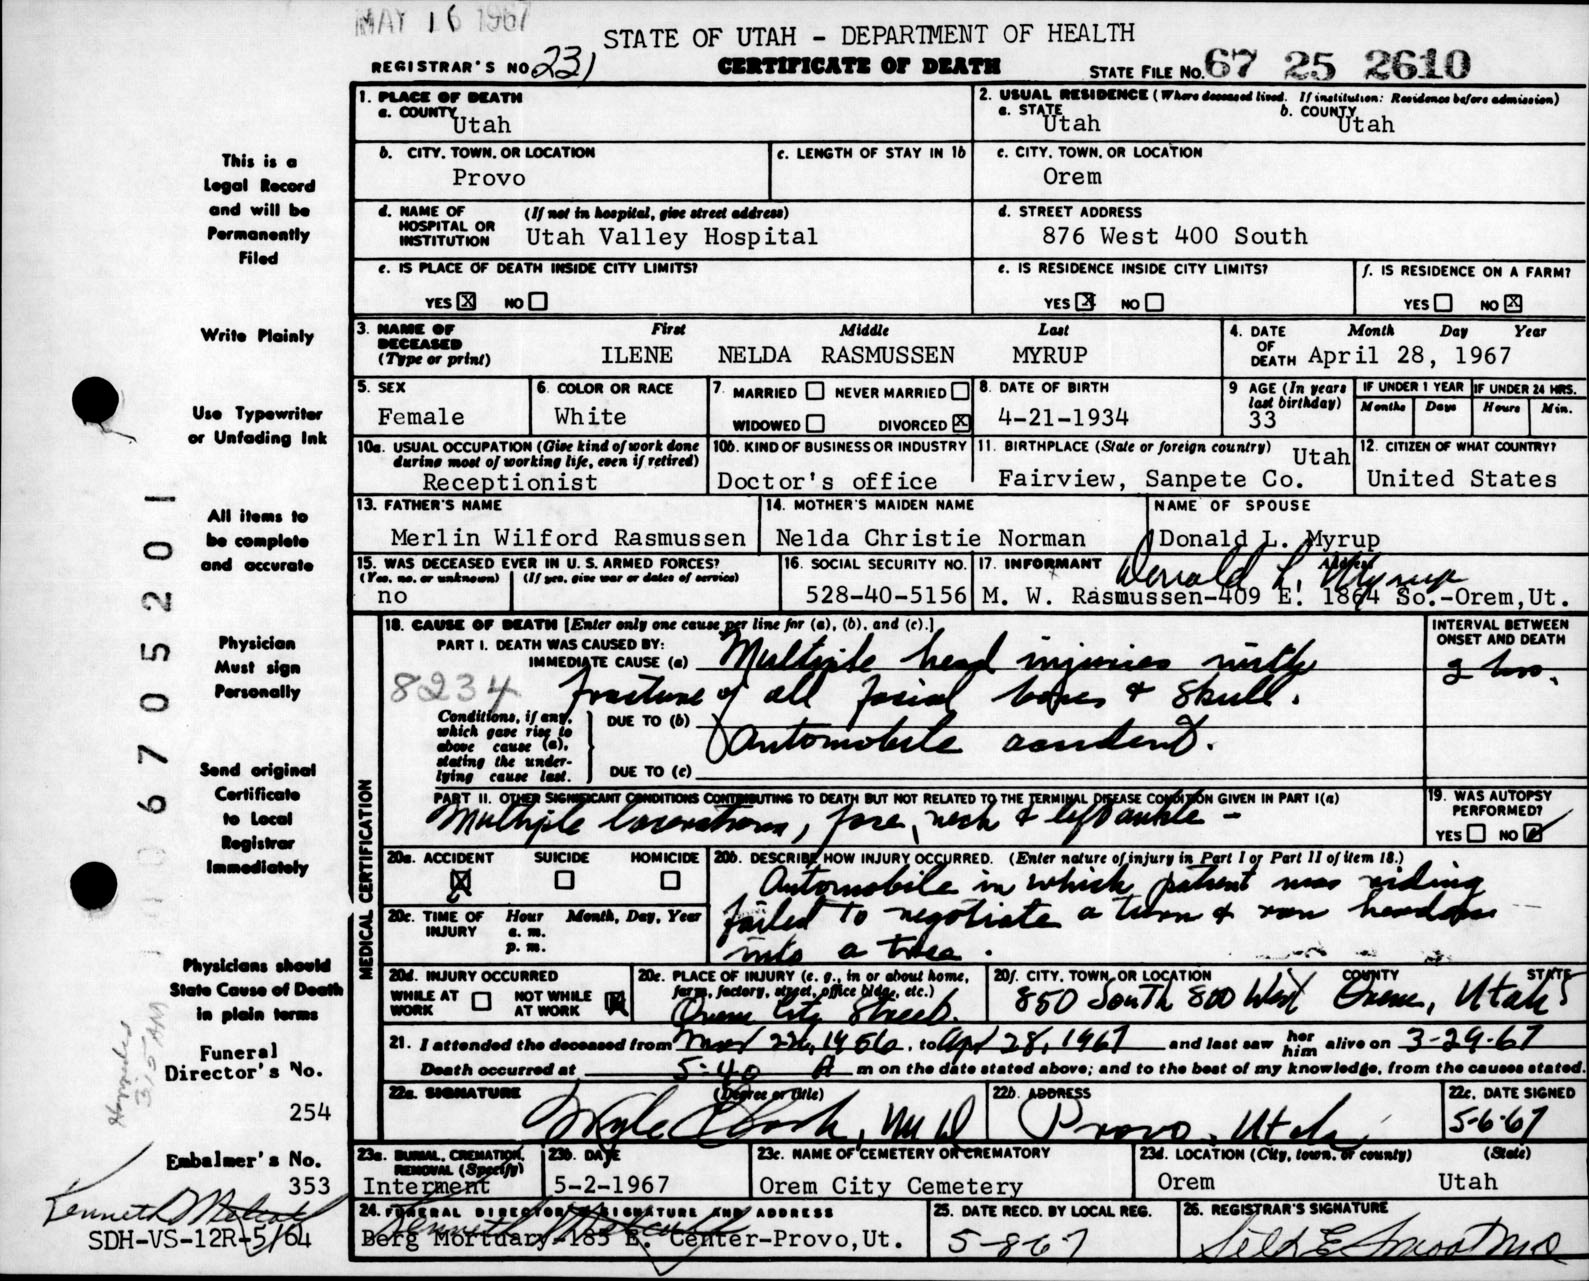 MAY 16 1967
STATE OF UTAH - DEPARTMENT OF HEALTH
REGISTRAR'S NO 231
CERTIFICATE OF DEATH
STATE FILE NO. 67 25 2610
This is a
Legal Record
and will be
Permanently
Filed
Write Plainly
Use Typewriter
or Unfading Ink
All items to
be complete
and accurate
Physician
Must sign
Personally
Send original
Certificate
to Local
Registrar
Immediately
Physicians should
State Cause of Death
in plain terms
Funeral
Director's No.
254
Embalmer's No.
353
SDH-VS-12R-5/64
1. PLACE OF DEATH
a. COUNTY
Utah
2. USUAL RESIDENCE (Where deceased lived. If institution: Residence before admission)
a. STATE
Utah
b. COUNTY
Utah
b. CITY, TOWN, OR LOCATION
Provo
c. LENGTH OF STAY IN 1b
c. CITY, TOWN, OR LOCATION
Orem
d. NAME OF HOSPITAL OR INSTITUTION
(If not in hospital, give street address)
Utah Valley Hospital
d. STREET ADDRESS
876 West 400 South
e. IS PLACE OF DEATH INSIDE CITY LIMITS?
YES X NO
e. IS RESIDENCE INSIDE CITY LIMITS?
YES X NO
f. IS RESIDENCE ON A FARM?
YES NO X
3. NAME OF DECEASED (Type or print)
First Middle Last
ILENE NELDA RASMUSSEN MYRUP
4. DATE OF DEATH
Month Day Year
April 28, 1967
5. SEX
Female
6. COLOR OR RACE
White
7. MARRIED NEVER MARRIED
WIDOWED DIVORCED X
8. DATE OF BIRTH
4-21-1934
9 AGE (In years last birthday)
33
IF UNDER 1 YEAR
Months Days
IF UNDER 24 HRS.
Hours Min.
10a. USUAL OCCUPATION (Give kind of work done
during most of working life, even if retired)
Receptionist
10b. KIND OF BUSINESS OR INDUSTRY
Doctor's office
11. BIRTHPLACE (State or foreign country)
Utah
Fairview, Sanpete Co.
12. CITIZEN OF WHAT COUNTRY?
United States
13. FATHER'S NAME
Merlin Wilford Rasmussen
14. MOTHER'S MAIDEN NAME
Nelda Christie Norman
NAME OF SPOUSE
Donald L. Myrup
15. WAS DECEASED EVER IN U. S. ARMED FORCES?
(Yes, no, or unknown) (If yes, give war or dates of service)
no
16. SOCIAL SECURITY NO.
528-40-5156
17. INFORMANT
Address
Donald L. Myrup
M. W. Rasmussen-409 E. 1864 So.-Orem,Ut.
18. CAUSE OF DEATH [Enter only one cause per line for (a), (b), and (c).]
PART I. DEATH WAS CAUSED BY:
IMMEDIATE CAUSE (a) Multiple head injuries with
8234 fracture of all facial bones & skull.
Conditions, if any,
which gave rise to
above cause (a),
stating the under-
lying cause last.
DUE TO (b)
Automobile accident.
DUE TO (c)
INTERVAL BETWEEN
ONSET AND DEATH
2 hrs.
PART II. OTHER SIGNIFICANT CONDITIONS CONTRIBUTING TO DEATH BUT NOT RELATED TO THE TERMINAL DISEASE CONDITION GIVEN IN PART I(a)
Multiple lacerations, face, neck & left ankle -
19. WAS AUTOPSY
PERFORMED?
YES NO
MEDICAL CERTIFICATION
20a. ACCIDENT SUICIDE HOMICIDE
X
20b. DESCRIBE HOW INJURY OCCURRED. (Enter nature of injury in Part I or Part II of item 18.)
Automobile in which patient was riding
failed to negotiate a turn & ran headon
into a tree.
20c. TIME OF INJURY
Hour Month, Day, Year
a. m.
p. m.
20d. INJURY OCCURRED
WHILE AT WORK NOT WHILE AT WORK X
20e. PLACE OF INJURY (e. g., in or about home,
farm, factory, street, office bldg. etc.)
Orem City Street.
20f. CITY, TOWN, OR LOCATION COUNTY STATE
850 South 800 West Orem, Utah
21. I attended the deceased from 1956, to Apr 28, 1967 and last saw her him alive on 3-29-67
Death occurred at 5-40 A m on the date stated above; and to the best of my knowledge, from the causes stated.
22a. SIGNATURE
(Degree or title)
M D
22b. ADDRESS
Provo, Utah
22c. DATE SIGNED
5-6-67
23a. BURIAL, CREMATION,
REMOVAL (Specify)
Interment
23b. DATE
5-2-1967
23c. NAME OF CEMETERY OR CREMATORY
Orem City Cemetery
23d. LOCATION (City, town, or county) (State)
Orem Utah
24. FUNERAL DIRECTOR'S SIGNATURE AND ADDRESS
Berg Mortuary-185 E. Center-Provo,Ut.
25. DATE RECD. BY LOCAL REG.
5-8-67
26. REGISTRAR'S SIGNATURE